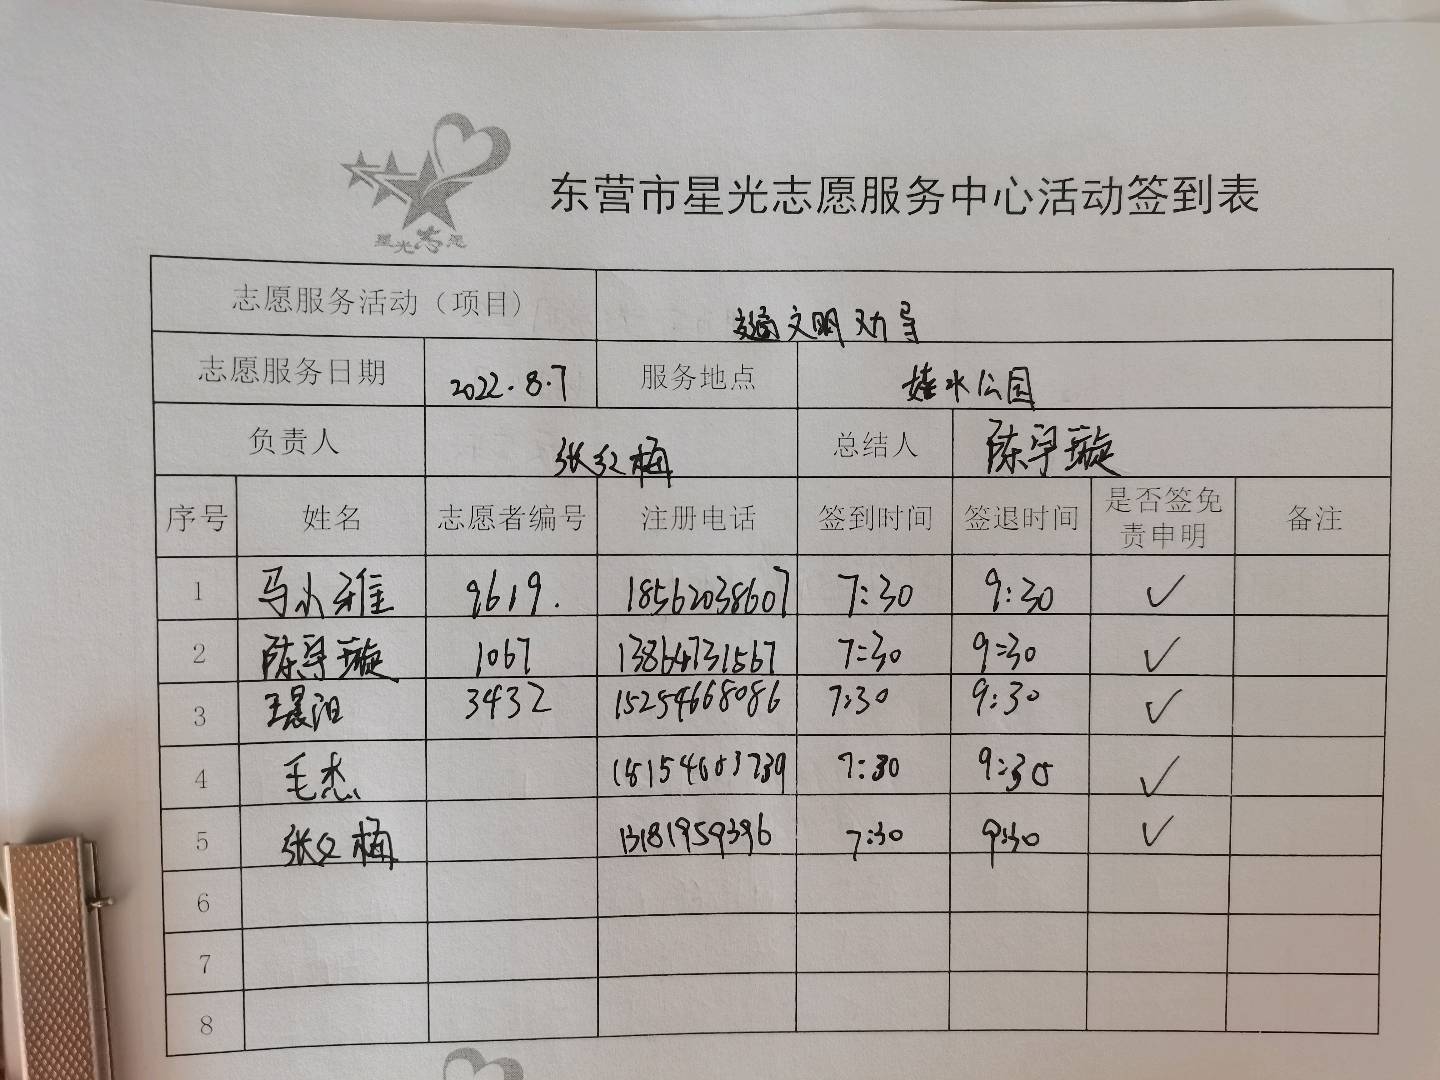 星光志愿
东营市星光志愿服务中心活动签到表
志愿服务活动（项目） 交通文明劝导
志愿服务日期 2022.8.7 服务地点 水公园
负责人 张红梅 总结人 陈宇璇
序号 姓名 志愿者编号 注册电话 签到时间 签退时间 是否签免责申明 备注
1 马小雅 9619. 18562038607 7:30 9:30 ✓
2 陈宇璇 1067 13864731567 7:30 9:30 ✓
3 王晨阳 3432 15254668086 7:30 9:30 ✓
4 毛杰 18154603739 7:30 9:30 ✓
5 张红梅 13181959396 7:30 9:30 ✓
6
7
8